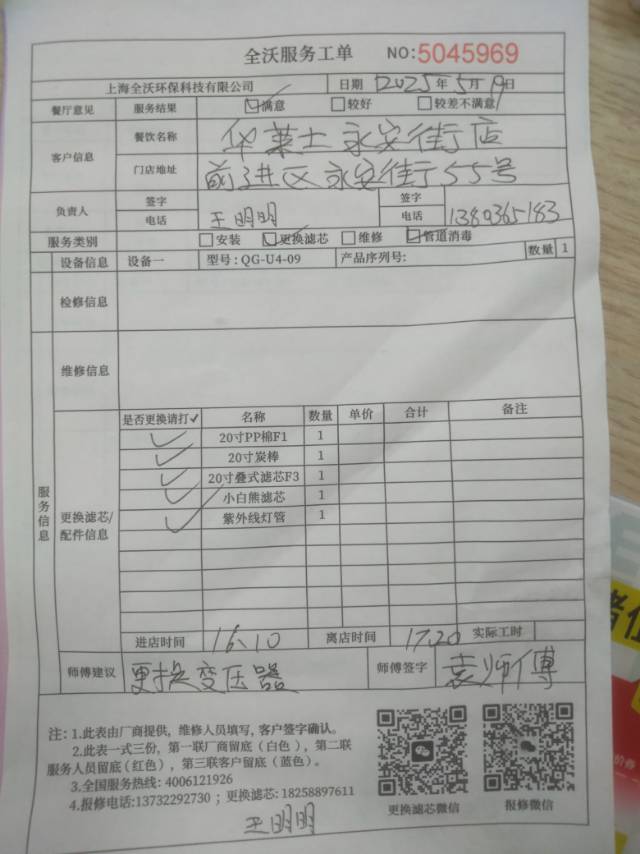 全沃服务工单 NO:5045969
上海全沃环保科技有限公司 日期 2025年5月19日
餐厅意见 服务结果 ☑满意 □较好 □较差不满意
客户信息 餐饮名称 华莱士永安街店
门店地址 前进区永安街55号
负责人 签字 电话 王明明 签字 电话
服务类别 □安装 ☑更换滤芯 □维修 ☑管道消毒
设备信息 设备一 型号:QG-U4-09 产品序列号: 数量 1
检修信息
维修信息
服务信息
更换滤芯/配件信息
是否更换请打✓ 名称 数量 单价 合计 备注
✓ 20寸PP棉F1 1
✓ 20寸炭棒 1
✓ 20寸叠式滤芯F3 1
✓ 小白熊滤芯 1
✓ 紫外线灯管 1
进店时间 16:10 离店时间 17:20 实际工时
师傅建议 更换变压器 师傅签字 袁师傅
注: 1.此表由厂商提供，维修人员填写, 客户签字确认。
2.此表一式三份，第一联厂商留底（白色），第二联
服务人员留底(红色)，第三联客户留底（蓝色）。
3.全国服务热线: 4006121926
4.报修电话:13732292730 ；更换滤芯: 18258897611
更换滤芯微信 报修微信
王明明